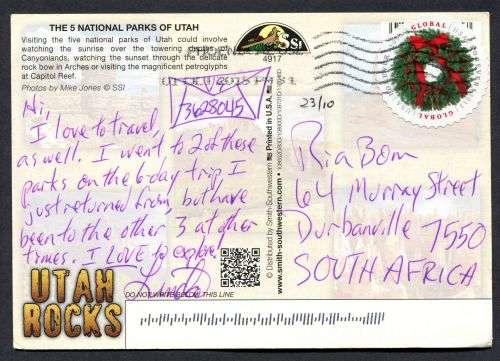 THE 5 NATIONAL PARKS OF UTAH
Visiting the five national parks of Utah could involve
watching the sunrise over the towering cliffs of
Canyonlands, watching the sunset through the delicate
rock bow in Arches or visiting the magnificent petroglyphs
at Capitol Reef.
Photos by Mike Jones © SSI
SSI
4917
GLOBAL
GLOBAL
3628045
23/10
Hi,
I love to travel,
as well. I went to 2 of these
parks on the 6 day trip I
just returned from, but have
been to the other 3 at other
times. I LOVE to explore!
Linda
Ria Bom
64 Murray Street
Durbanville 7550
SOUTH AFRICA
Printed in U.S.A.
© Distributed by Smith-Southwestern
www.smith-southwestern.com
UTAH
ROCKS
DO NOT WRITE BELOW THIS LINE